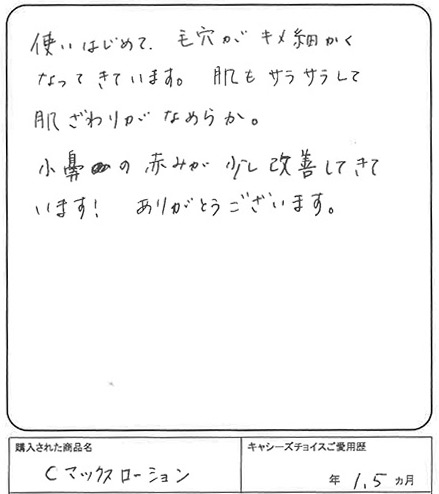 使いはじめて、毛穴がキメ細かく
なってきています。 肌もサラサラして
肌ざわりがなめらか。
小鼻の赤みが少し改善してきて
います! ありがとうございます。
購入された商品名
Cマックスローション
キャシーズチョイスご愛用歴
年 1.5 カ月